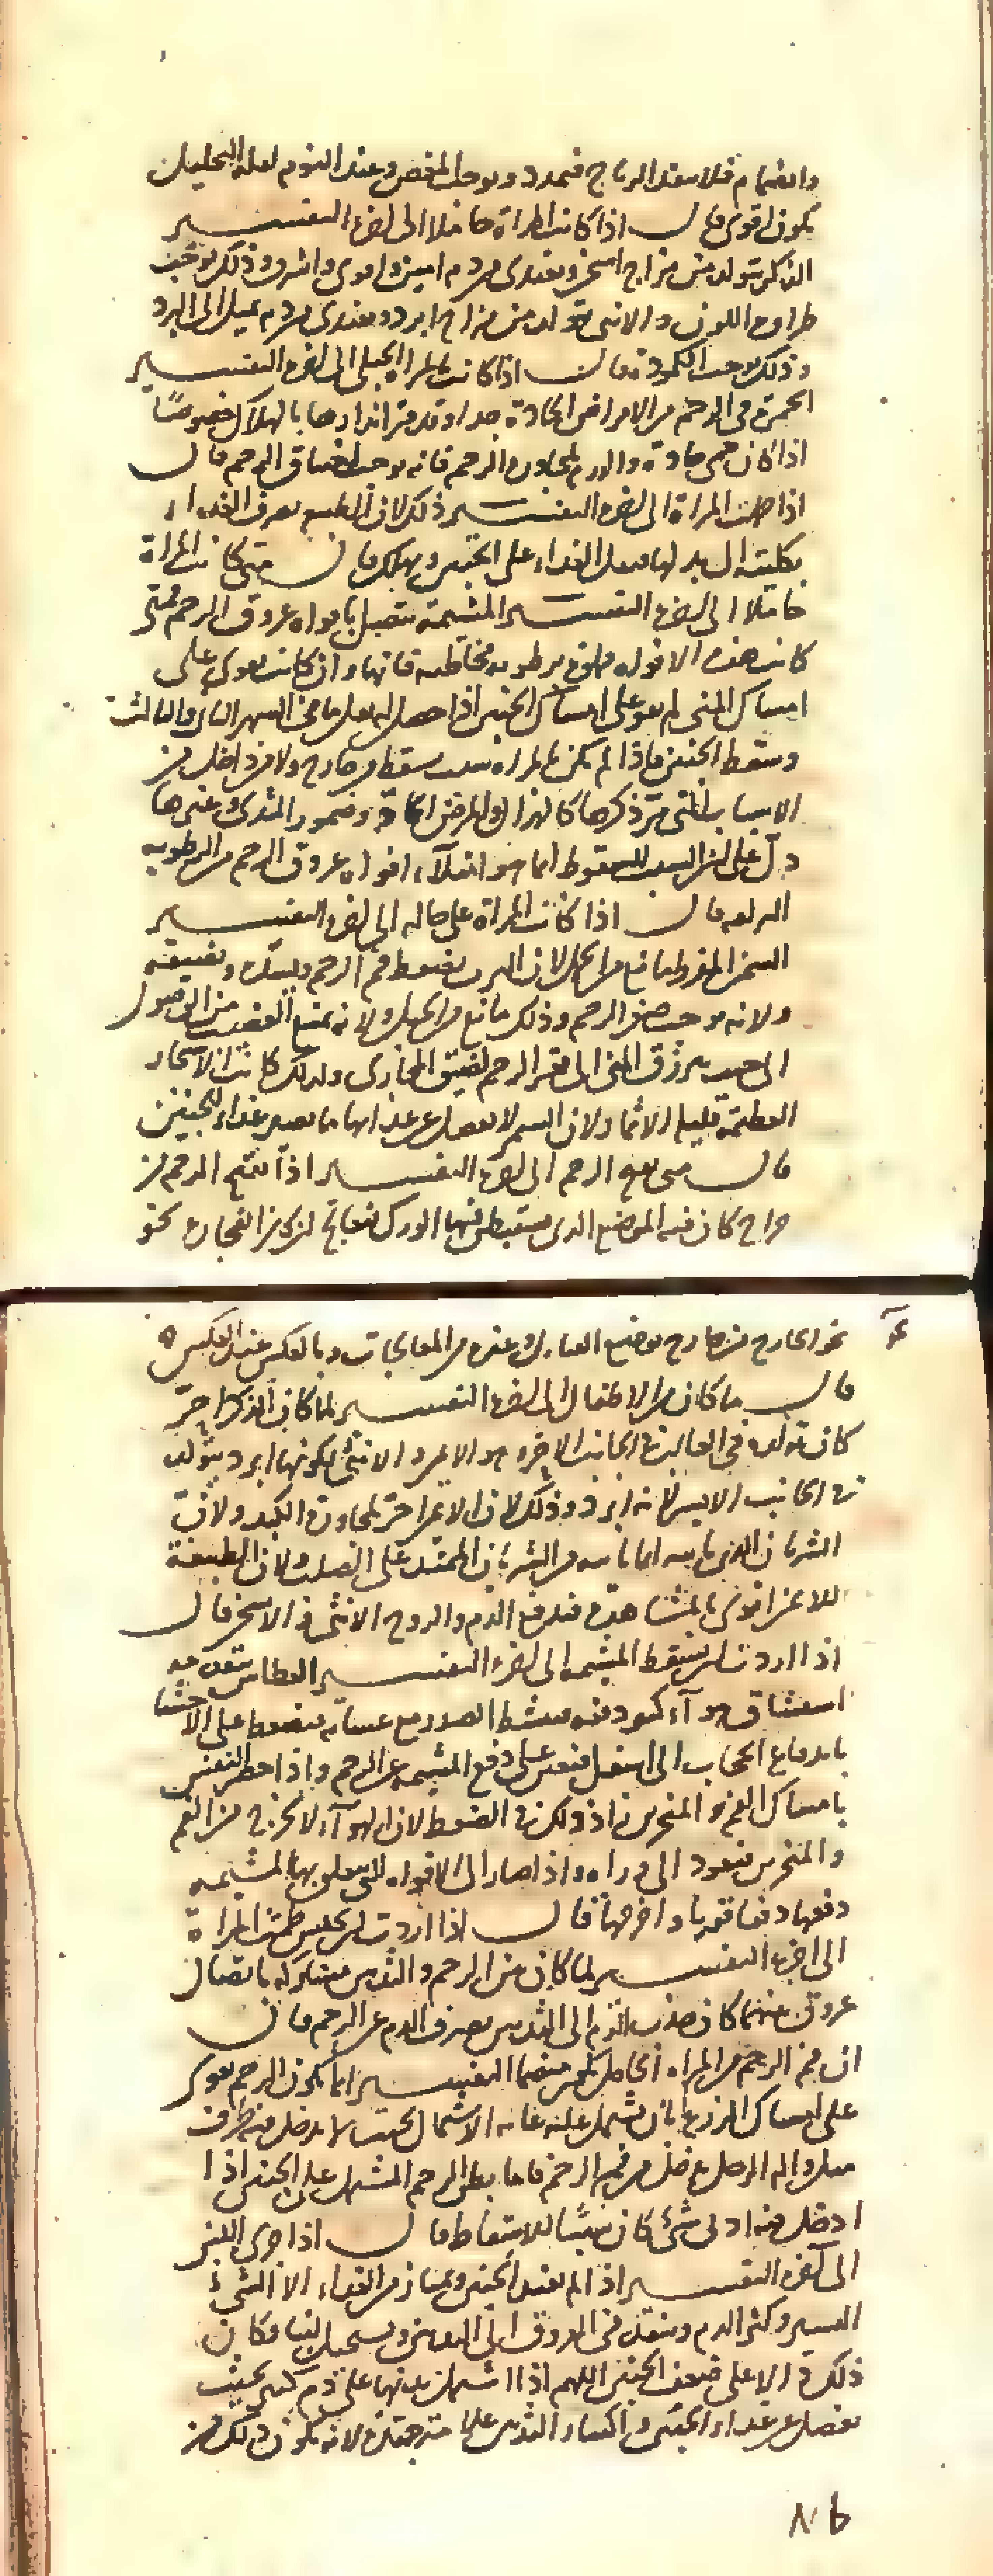 والهضام فلا سعد الرياح فتمدد ويوجب المغص وعند النوم لعله التحليل
يكون اقوى قال اذا كانت المراة حاملا الى اخره التفسير
الذكر يتولد من مزاج اسخن ويغتذى بدم اسخن واقوى واشرق وذلك يوجب
طراوة اللون والانثى تتولد من مزاج ابرد ويغتذى بدم يميل الى البرد
وذلك يوجب الكمودة قال اذا كانت بالمراة الحبلى الى اخره التفسير
الحمرة فى الرحم من الامراض الحادة جدا وقد مر انذارها بالهلاك خصوصا
اذا كان حمى حادة والورم لمجاورة الرحم فانه يوجب اختناق الرحم قال
اذا طمثت المراة الى اخره التفسير ذلك لان الطبيعة تصرف الغذاء
بكليته الى بدنها فيقل الغذاء على الجنين ويهلك قال متى كانت المراة
حاملا الى اخره التفسير المشيمة تتصل بافواه عروق الرحم فمتى
كانت هذه الافواه مملوة برطوبة مخاطية فانها وان كانت تقوى على
امساك المنى لم تقو على امساك الجنين اذا حصل له ثقل ما فى الشهر الثانى والثالث
وسقط الجنين فاذا لم يكن بالمراة سبب سقط من خارج ولا من داخل من
الاسباب التى مر ذكرها كالهزال والمرض الحاد وضمور الثدى وغيرها
دل على ان السبب للسقوط انما هو امتلاء افواه عروق الرحم من الرطوبة
المزلقة قال اذا كانت المراة على حالة الى اخره التفسير
السمن المفرط مانع من الحبل لان الثرب يضغط فم الرحم ويسده ويضيقه
ولانه يوجب صغر الرحم وذلك مانع من الحبل ولانه يمنع القضيب من الوصول
الى حيث يزرق المنى الى قعر الرحم لضيق المجارى ولذلك كانت الاشجار
العظيمة قليلة الاثمار ولان السمن لا يفضل عن غذائها ما يصير غذاء للجنين
قال متى تقيح الرحم الى اخره التفسير اذا تقيح الرحم من
خراج كان فيه الموضع الذى يستبطن فيها الورك فيعالج لئن كان انفجاره نحو
نحو الخارج من خارج بوضع الفتايل وغيره من المعالجات وبالعكس عند العكس
قال ما كان من الاطفال الى اخره التفسير لما كان الذكر احر
كان تولده فى الغالب فى الجانب الاحر وهو الايمن والانثى لكونها ابرد يتولد
فى الجانب الايسر لانه ابرد وذلك لان الايمن احر لمجاورة الكبد ولان
الشريان الذى ياتيه انما ياتيه من الشريان الممتد على الصلب ولان الطبيعة
للايمن اقوى بالمشاهدة فيندفع الدم والروح الانثى فى الاسخن قال
اذا اردت ان تسقط المشيمة الى اخره التفسير العطاس يتقدمه
استنشاق هواء كثير دفعه فينبسط الصدر مع عضلاته فيضغط على الاحشا
باندفاع الحجاب الى اسفل فيعين على دفع المشيمة عن الرحم واذا حصر التنفس
بامساك الفم والمنخرين زاد ذلك فى الضغط لان الهواء لا يخرج من الفم
والمنخرين فيعود الى وراه واذا صار الى الافواه التى يتعلق بها المشيمة
دفعها دفعا قويا واخرجها قال اذا اردت ان تحبس طمث المراة
الى اخره التفسير لما كان بين الرحم والثديين مشاركة باتصال
عروق بينهما كان جذب الدم الى الثديين يصرف الدم عن الرحم قال
ان فم الرحم من المراة الحامل يكون منضما التفسير انما يكون الرحم يقوى
على امساك الزرع بان يشتمل عليه غاية الاشتمال بحيث لا يدخل فيه طرف
ميل والا الرحل عضل من فم الرحم فاما بطن الرحم المشتمل على الجنين اذا
ادخل فيه ادنى شئ كان مهيئا للاسقاط قال اذا جرى اللبن
الى اخره التفسير اذا لم يغتذ الجنين ويمتاز من الغذاء الا الشئ
اليسير وكثر الدم وينتقل فى العروق الى الثديين ويستحيل لبنا فكان
ذلك دالا على ضعف الجنين اللهم اذا اشتمل بدنها على دم كثير بحيث
يفضل عن غذاء الجنين واكتناز الثديين علامة جيدة لانه يكون ذلك من